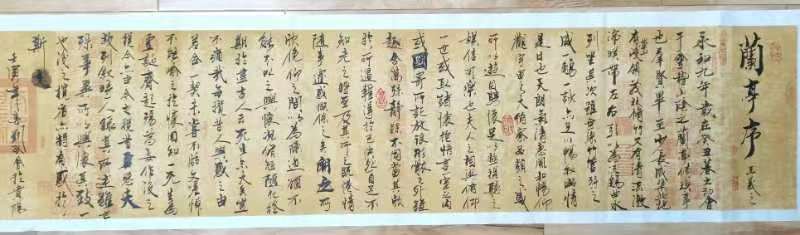 蘭亭序
王羲之
永和九年歲在癸丑暮春之初會
于會稽山陰之蘭亭脩禊事
也群賢畢至少長咸集此地
有崇山峻領茂林脩竹又有清流激
湍暎帶左右引以為流觴曲水
列坐其次雖無絲竹管弦之
盛一觴一詠亦足以暢敘幽情
是日也天朗氣清惠風和暢仰
觀宇宙之大俯察品類之盛
所以遊目騁懷足以極視聽之
娛信可樂也夫人之相與俯仰
一世或取諸懷抱悟言一室之內
或因寄所託放浪形骸之外雖
趣舍萬殊靜躁不同當其欣
於所遇蹔得於己怏然自足不
知老之將至及其所之既惓情
隨事遷感慨係之矣向之所
欣俛仰之閒以為陳迹猶不
能不以之興懷況脩短隨化終
期於盡古人云死生亦大矣豈
不痛哉每攬昔人興感之由
若合一契未嘗不臨文嗟悼
不能喻之於懷固知一死生為
虛誕齊彭殤為妄作後之
視今亦由今之視昔悲夫
故列敘時人錄其所述雖世
殊事異所以興懷其致一
也後之攬者亦將有感於
斯文